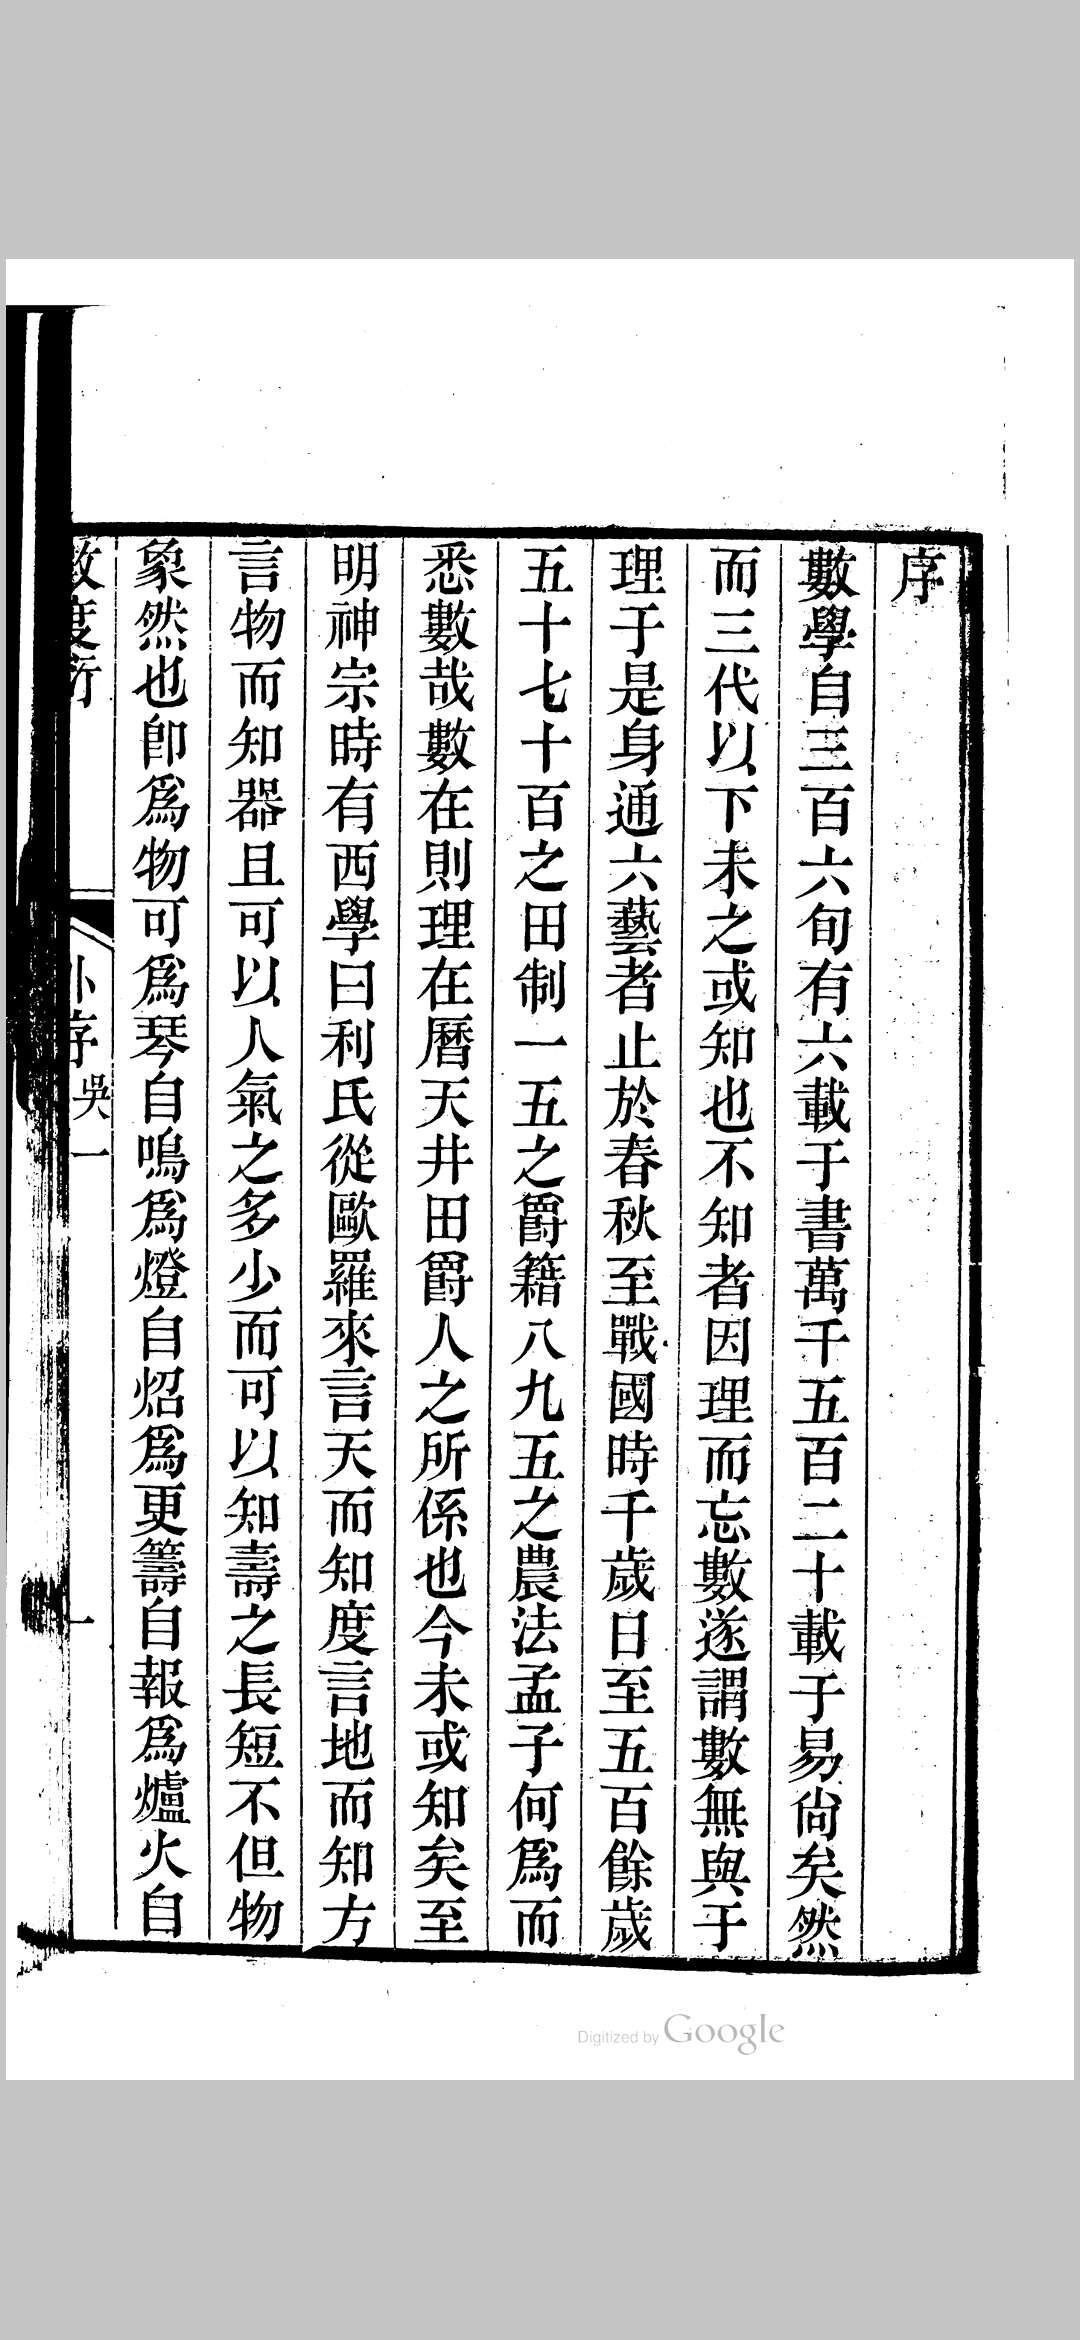 序
數學自三百六旬有六載于書萬千五百二十載于易尙矣然
而三代以下未之或知也不知者因理而忘數遂謂數無與于
理于是身通六藝者止於春秋至戰國時千歲日至五百餘歲
五十七十百之田制一五之爵籍八九五之農法孟子何爲而
悉數哉數在則理在曆天井田爵人之所係也今未或知矣至
明神宗時有西學曰利氏從歐羅來言天而知度言地而知方
言物而知器且可以人氣之多少而可以知壽之長短不但物
象然也卽爲物可爲琴自鳴爲燈自炤爲更籌自報爲爐火自
數度衍
序 吳 一
一
Digitized by Google